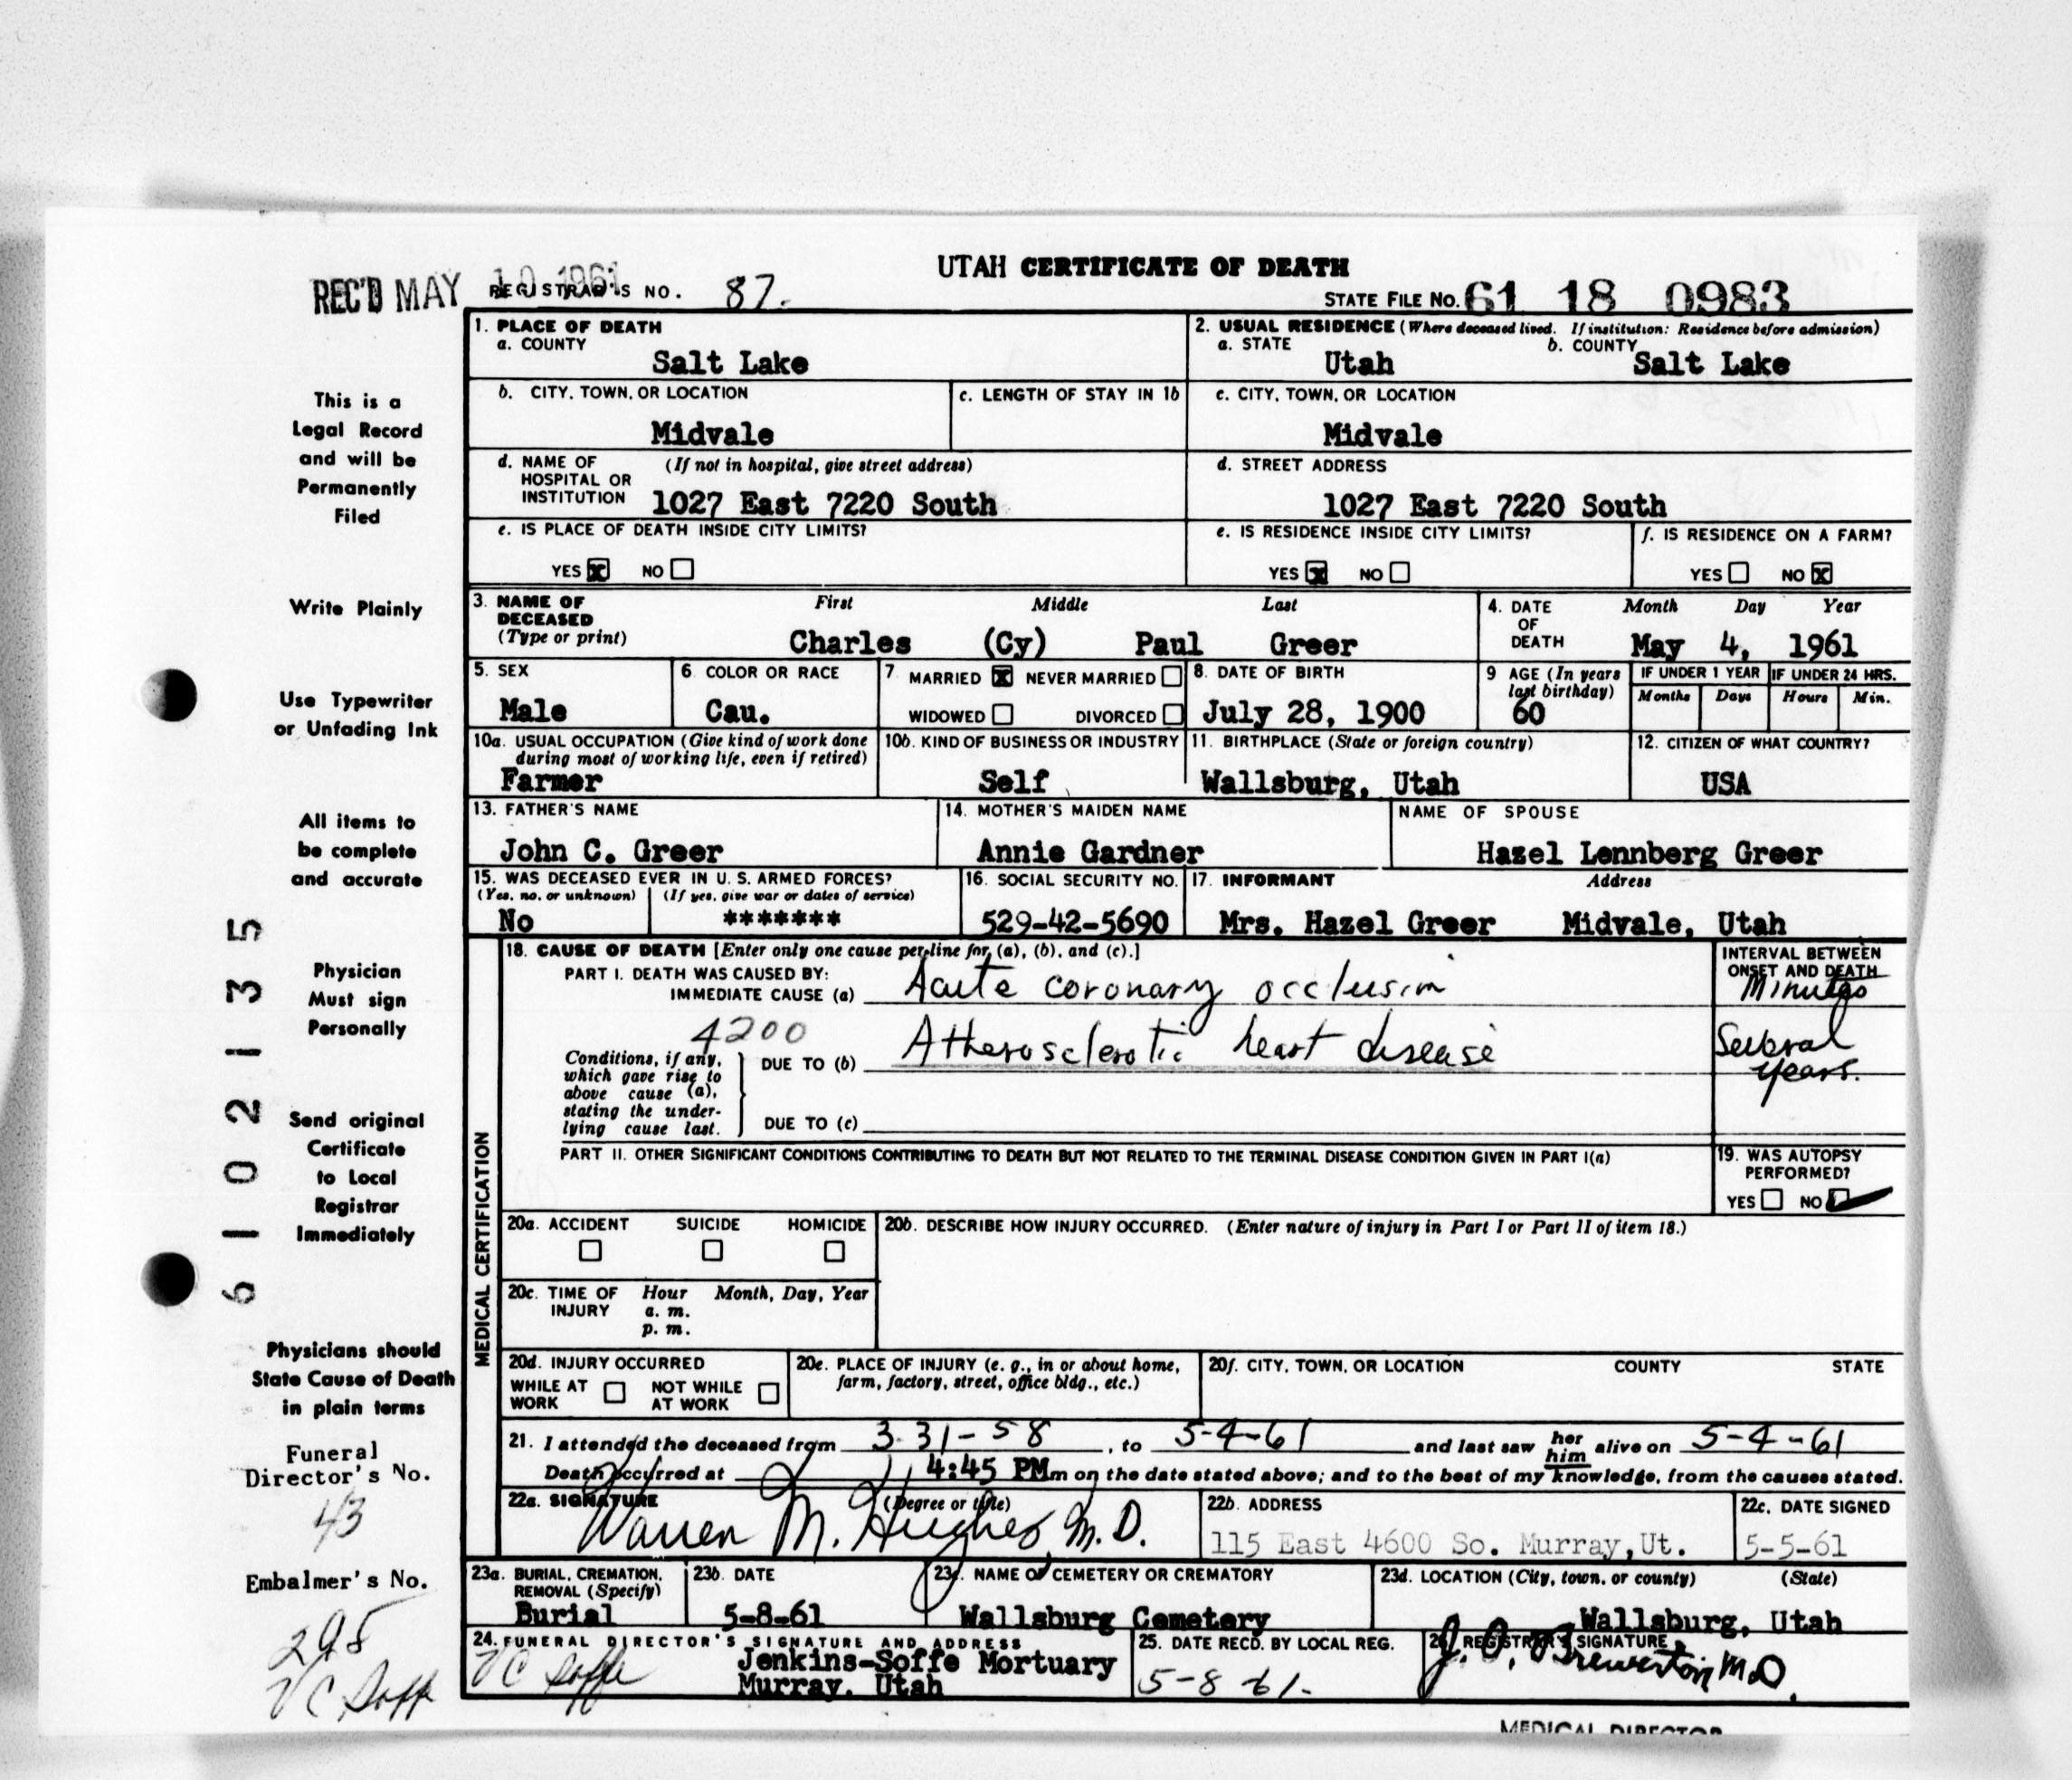 UTAH CERTIFICATE OF DEATH
REC'D MAY 10 1961
REGISTRAR'S NO. 87.
STATE FILE No. 61 18 0983
This is a
Legal Record
and will be
Permanently
Filed
Write Plainly
Use Typewriter
or Unfading Ink
All items to
be complete
and accurate
Physician
Must sign
Personally
Send original
Certificate
to Local
Registrar
Immediately
Physicians should
State Cause of Death
in plain terms
Funeral
Director's No.
43
Embalmer's No.
295
V C Soffe
61021135
1. PLACE OF DEATH
a. COUNTY
Salt Lake
2. USUAL RESIDENCE (Where deceased lived. If institution: Residence before admission)
a. STATE b. COUNTY
Utah Salt Lake
b. CITY, TOWN, OR LOCATION
Midvale
c. LENGTH OF STAY IN 1b
c. CITY, TOWN, OR LOCATION
Midvale
d. NAME OF (If not in hospital, give street address)
HOSPITAL OR
INSTITUTION 1027 East 7220 South
d. STREET ADDRESS
1027 East 7220 South
e. IS PLACE OF DEATH INSIDE CITY LIMITS?
YES X NO
e. IS RESIDENCE INSIDE CITY LIMITS?
YES X NO
f. IS RESIDENCE ON A FARM?
YES NO X
3. NAME OF First Middle Last
DECEASED
(Type or print) Charles (Cy) Paul Greer
4. DATE Month Day Year
OF
DEATH May 4, 1961
5. SEX
Male
6. COLOR OR RACE
Cau.
7. MARRIED X NEVER MARRIED
WIDOWED DIVORCED
8. DATE OF BIRTH
July 28, 1900
9 AGE (In years
last birthday)
60
IF UNDER 1 YEAR IF UNDER 24 HRS.
Months Days Hours Min.
10a. USUAL OCCUPATION (Give kind of work done
during most of working life, even if retired)
Farmer
10b. KIND OF BUSINESS OR INDUSTRY
Self
11. BIRTHPLACE (State or foreign country)
Wallsburg, Utah
12. CITIZEN OF WHAT COUNTRY?
USA
13. FATHER'S NAME
John C. Greer
14. MOTHER'S MAIDEN NAME
Annie Gardner
NAME OF SPOUSE
Hazel Lennberg Greer
15. WAS DECEASED EVER IN U. S. ARMED FORCES?
(Yes, no, or unknown) (If yes, give war or dates of service)
No *******
16. SOCIAL SECURITY NO.
529-42-5690
17. INFORMANT Address
Mrs. Hazel Greer Midvale, Utah
MEDICAL CERTIFICATION
18. CAUSE OF DEATH [Enter only one cause per line for (a), (b), and (c).]
PART I. DEATH WAS CAUSED BY:
IMMEDIATE CAUSE (a) Acute coronary occlusion
INTERVAL BETWEEN
ONSET AND DEATH
Minutes
4200
Conditions, if any,
which gave rise to
above cause (a),
stating the under-
lying cause last.
DUE TO (b) Atherosclerotic heart disease
Several
years.
DUE TO (c)
PART II. OTHER SIGNIFICANT CONDITIONS CONTRIBUTING TO DEATH BUT NOT RELATED TO THE TERMINAL DISEASE CONDITION GIVEN IN PART I(a)
19. WAS AUTOPSY
PERFORMED?
YES NO
20a. ACCIDENT SUICIDE HOMICIDE
20b. DESCRIBE HOW INJURY OCCURRED. (Enter nature of injury in Part I or Part II of item 18.)
20c. TIME OF Hour Month, Day, Year
INJURY a. m.
p. m.
20d. INJURY OCCURRED
WHILE AT NOT WHILE
WORK AT WORK
20e. PLACE OF INJURY (e. g., in or about home,
farm, factory, street, office bldg., etc.)
20f. CITY, TOWN, OR LOCATION COUNTY STATE
21. I attended the deceased from 3-31-58, to 5-4-61 and last saw her him alive on 5-4-61
Death occurred at 4:45 PMm on the date stated above; and to the best of my knowledge, from the causes stated.
22a. SIGNATURE (Degree or title)
Warren M. Hughes, M.D.
22b. ADDRESS
115 East 4600 So. Murray,Ut.
22c. DATE SIGNED
5-5-61
23a. BURIAL, CREMATION,
REMOVAL (Specify)
Burial
23b. DATE
5-8-61
23c. NAME OF CEMETERY OR CREMATORY
Wallsburg Cemetery
23d. LOCATION (City, town, or county) (State)
Wallsburg, Utah
24. FUNERAL DIRECTOR'S SIGNATURE AND ADDRESS
V C Soffe Jenkins-Soffe Mortuary
Murray, Utah
25. DATE RECD. BY LOCAL REG.
5-8 61.
26. REGISTRAR'S SIGNATURE
J. O. Brewerton M.D.
MEDICAL DIRECTOR